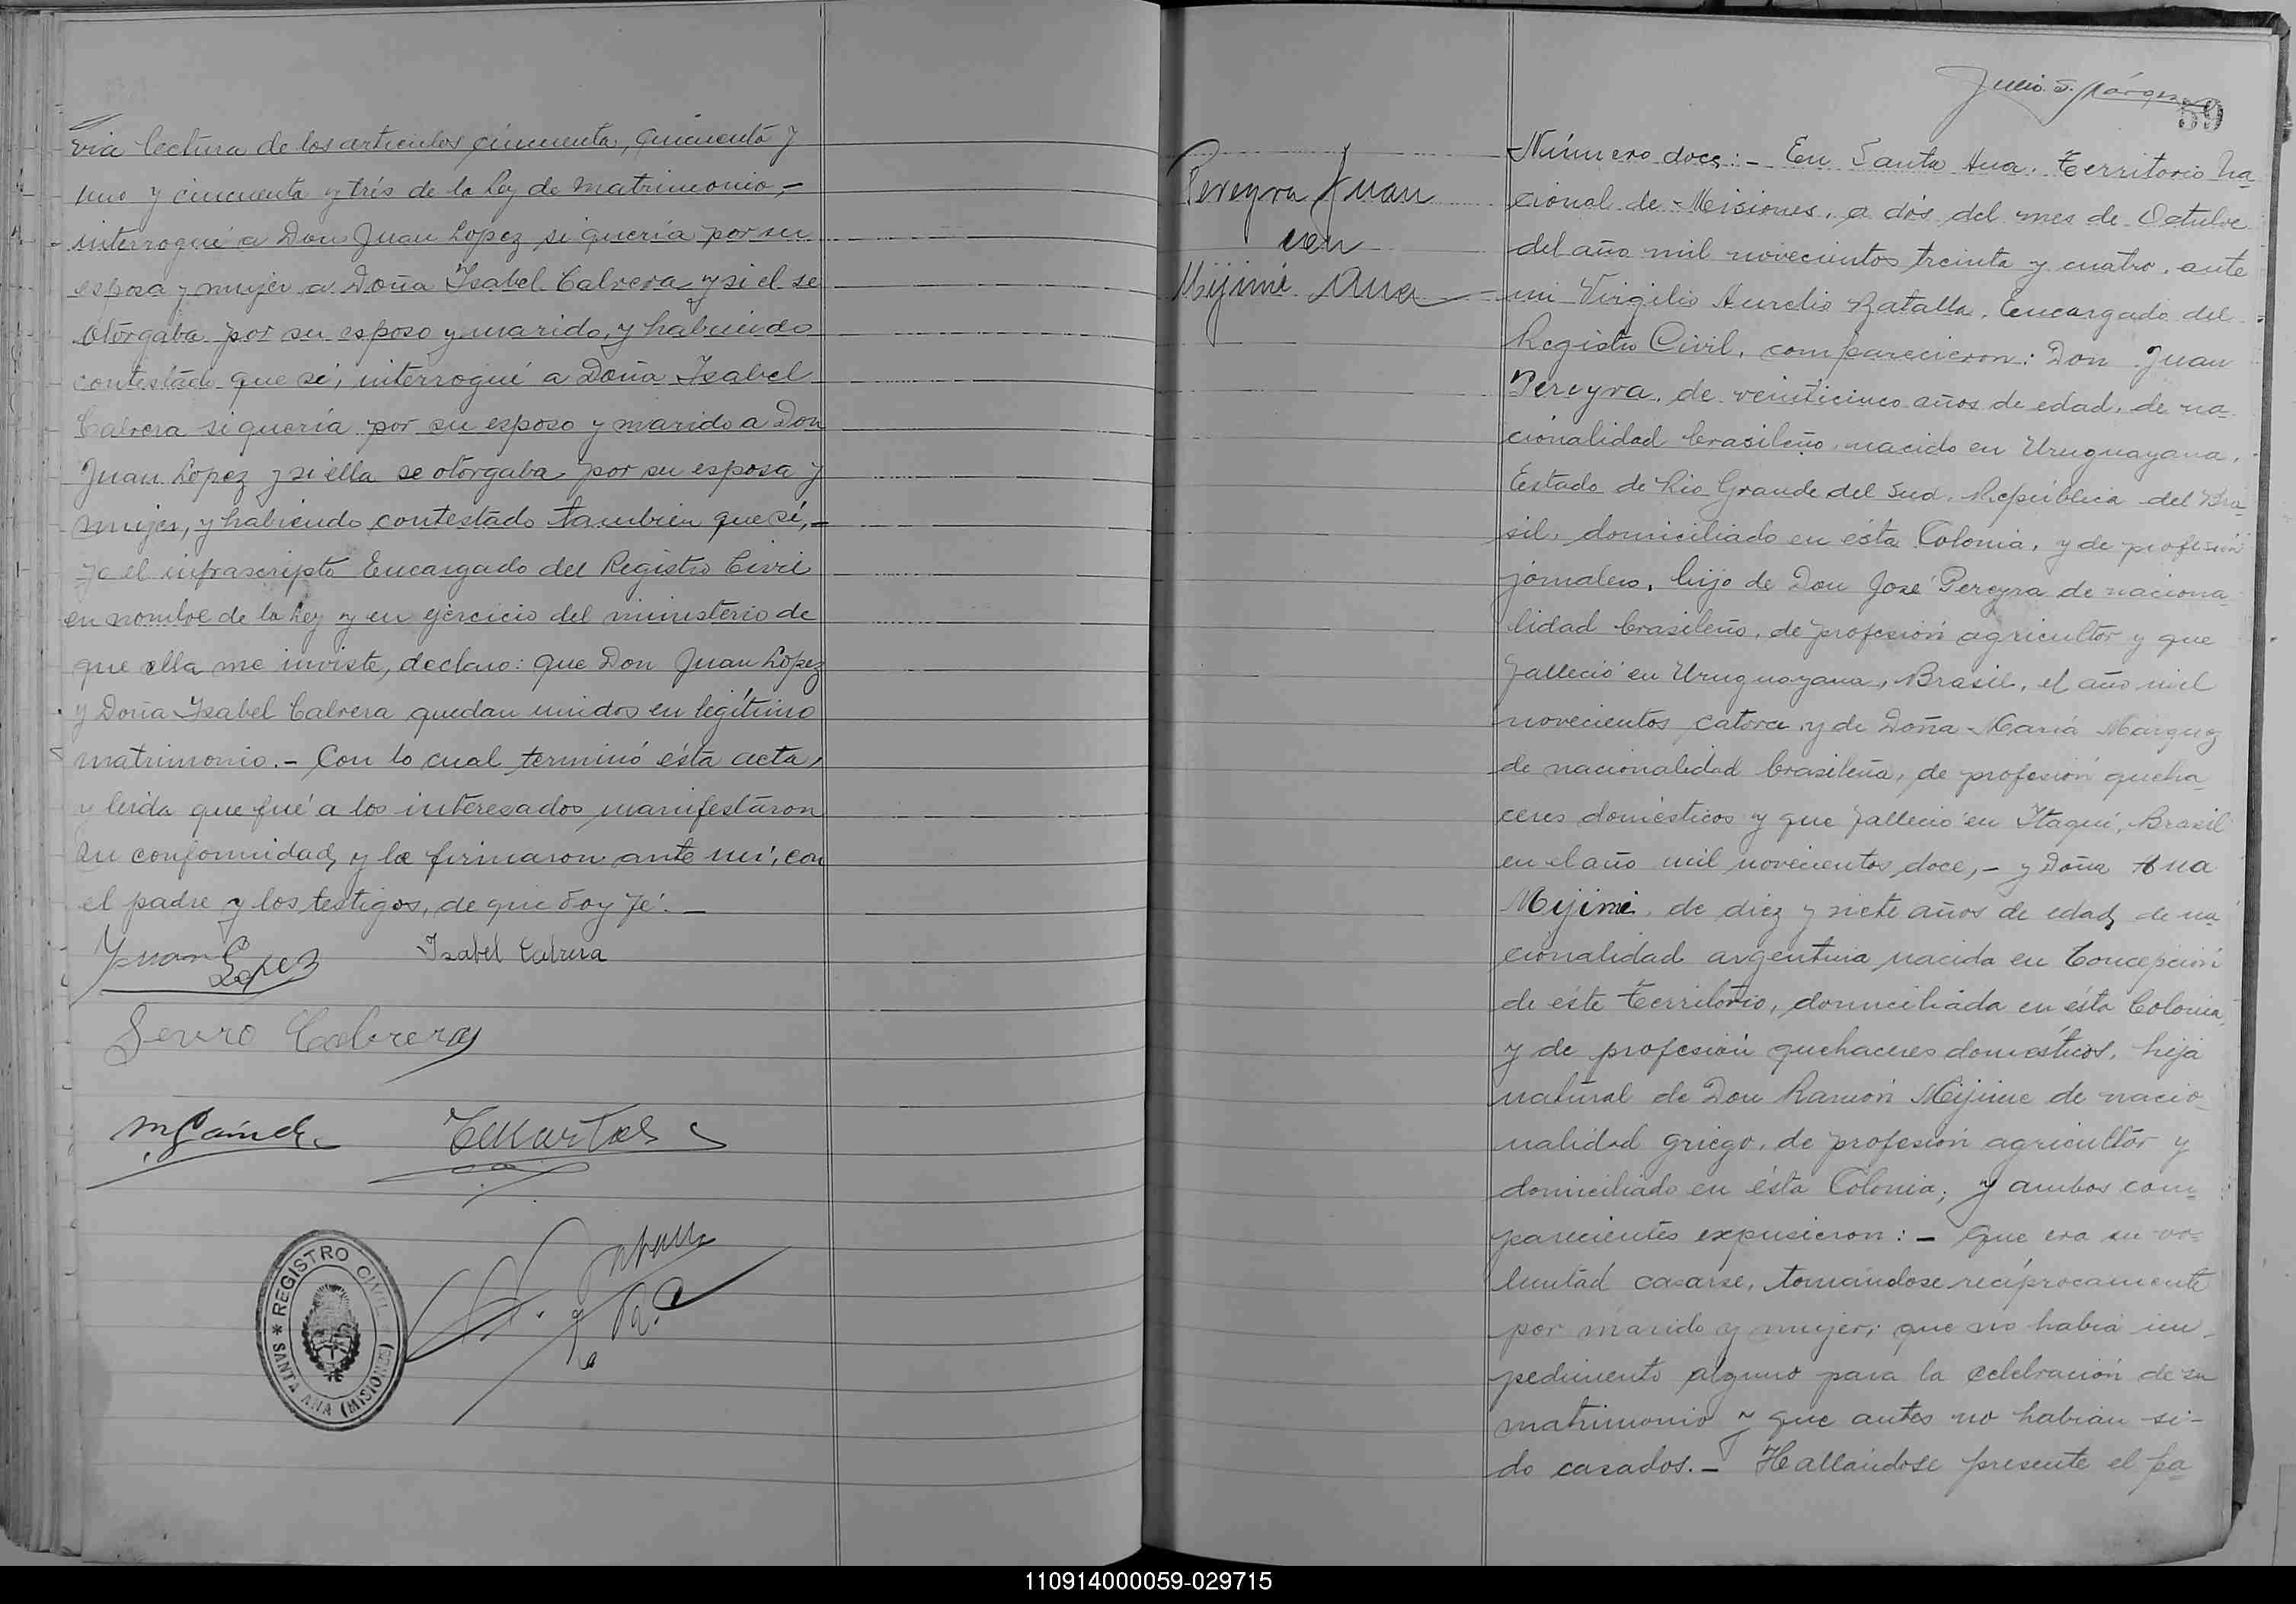 via lectura de los articulos cincuenta, cincuenta y
uno y cincuenta y trés de la Ley de Matrimonio,-
interrogué a Don Juan Lopez si quería por su
esposa y mujer a Doña Isabel Cabrera y si el se
otorgaba por su esposo y marido, y habiendo
contestado que sí, interrogué a Doña Isabel
Cabrera si quería por su esposo y marido a Don
Juan Lopez y si ella se otorgaba por su esposa y
mujer, y habiendo contestado tambien que sí,-
yo el infrascripto Encargado del Registro Civil
en nombre de la Ley y en ejercicio del ministerio de
que ella me inviste, declaro: que Don Juan Lopez
y Doña Isabel Cabrera quedan unidos en legítimo
matrimonio.- Con lo cual terminó ésta acta,
y leida que fué a los interesados manifestaron
su conformidad, y la firmaron ante mí, con
el padre y los testigos, de que doy fé.-
Juan Lopez Isabel Cabrera
Cabrera
REGISTRO CIVIL
* SANTA ANA (MISIONES)
59
Pereyra Juan
con
Mijimé Ana
Número doce:- En Santa Ana, Territorio Na-
cional de Misiones, a dós del mes de Octubre
del año mil novecientos treinta y cuatro, ante
mi Virgilio Aurelio Zatalla, Encargado del
Registro Civil, comparecieron: Don Juan
Pereyra, de veinticinco años de edad, de na-
cionalidad brasileño, nacido en Uruguayana,
Estado de Rio Grande del Sud, República del Bra-
sil, domiciliado en ésta Colonia, y de profesión
jornalero, hijo de Don José Pereyra de naciona-
lidad brasileño, de profesión agricultor y que
falleció en Uruguayana, Brasil, el año mil
novecientos catorce, y de Doña María Marquez
de nacionalidad brasileña, de profesión queha-
ceres domésticos y que falleció en Itaquí, Brasil
en el año mil novecientos doce,- y Doña Ana
Mijimé, de diez y siete años de edad, de na-
cionalidad argentina nacida en Concepción
de éste Territorio, domiciliada en ésta Colonia,
y de profesión quehaceres domésticos, hija
natural de Don Ramón Mijime de nacio-
nalidad griego, de profesión agricultor y
domiciliado en ésta Colonia; y ambos com-
parecientes expusieron:- Que era su vo-
luntad casarse, tomándose recíprocamente
por marido y mujer; que no había im-
pedimento alguno para la celebración de su
matrimonio y que antes no habian si-
do casados.- Hallándose presente el pa-
110914000059-029715